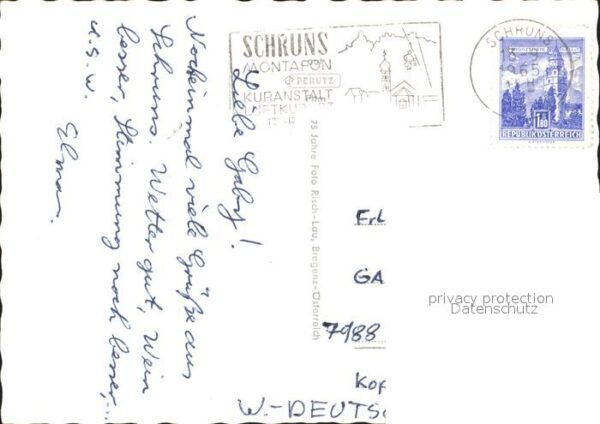 SCHRUNS
MONTAFON
PERUTZ
KURANSTALT
SCHRUNS
1965
1.80
REPUBLIK ÖSTERREICH
Liebe Gaby!
Nocheinmal viele Grüße aus
Schruns. Wetter gut, Wein
besser, Stimmung noch besser,...
u.s.w.
Elmar.
75 Jahre Foto Risch-Lau, Bregenz-Österreich
Erl
GA
7988
Kop
W.-DEUTSC
privacy protection
Datenschutz